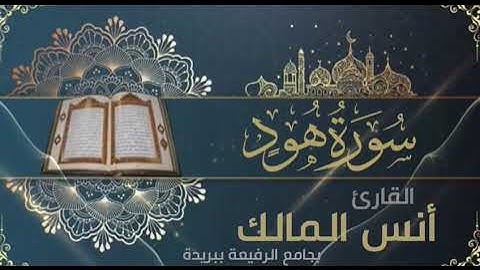 سُورَةُ هُودٍ
القارئ
أنس المالك
بجامع الرفيعة ببريدة